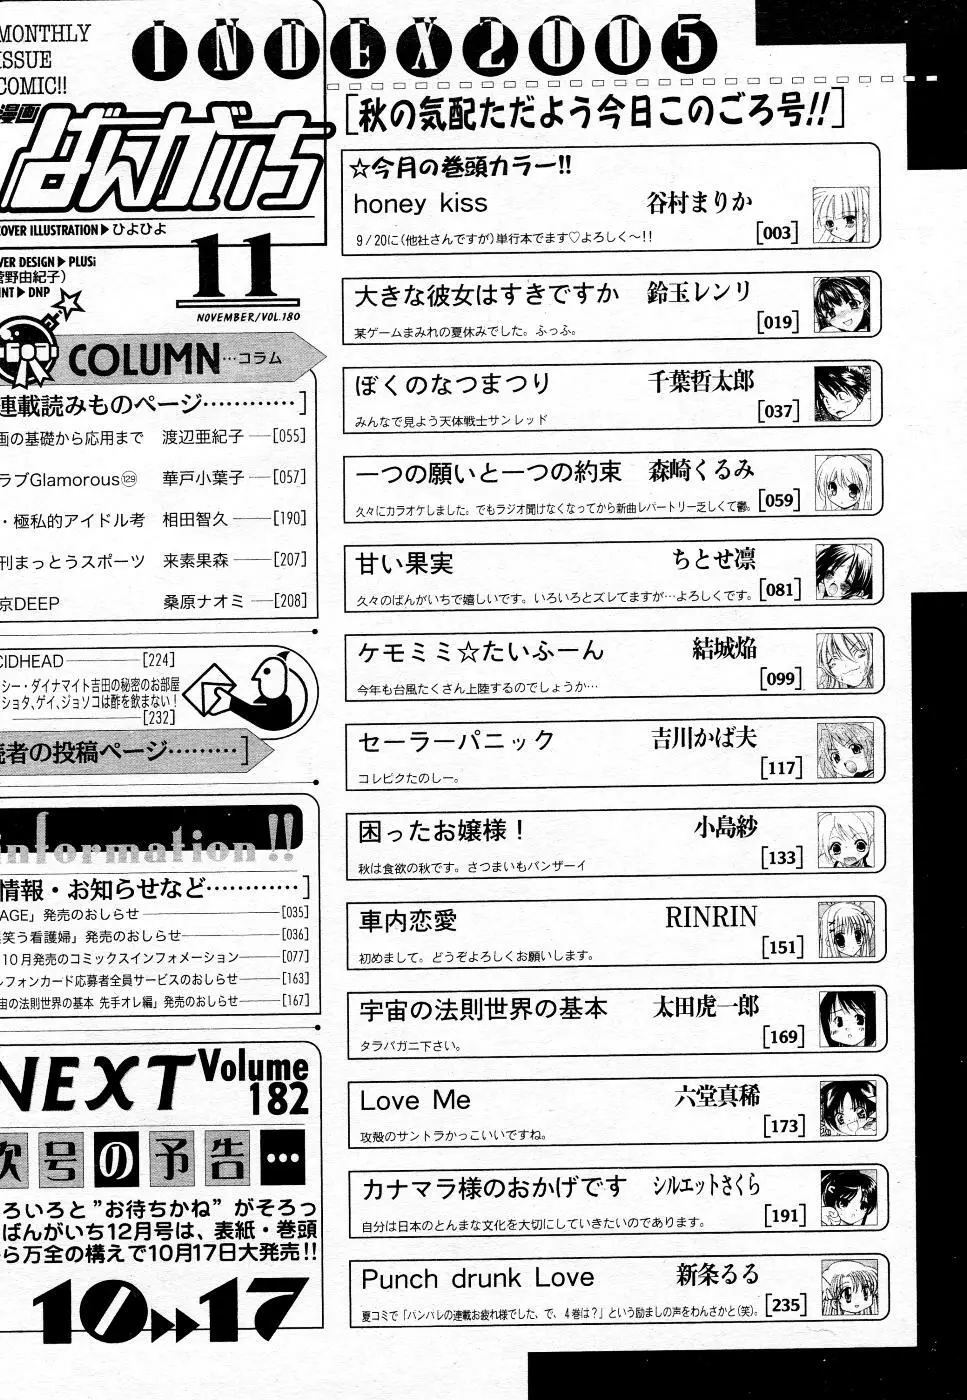 MONTHLY
ISSUE
COMIC!!
漫画
ばんがいち
COVER ILLUSTRATION▶ひよひよ
VER DESIGN▶PLUSi
菅野由紀子)
INT▶DNP
11
NOVEMBER/VOL.180
COLUMN…コラム
連載読みものページ…………]
画の基礎から応用まで 渡辺亜紀子―[055]
ラブGlamorous129 華戸小葉子―[057]
・極私的アイドル考 相田智久―[190]
刊まっとうスポーツ 来素果森―[207]
京DEEP 桑原ナオミ―[208]
CIDHEAD―[224]
シー・ダイナマイト吉田の秘密のお部屋
ショタ、ゲイ、ジョソコは酢を飲まない!
―[232]
読者の投稿ページ………]
information!!
情報・お知らせなど…………]
AGE」発売のおしらせ―[035]
笑う看護婦」発売のおしらせ―[036]
10月発売のコミックスインフォメーション―[077]
レフォンカード応募者全員サービスのおしらせ―[163]
宙の法則世界の基本 先手オレ編」発売のおしらせ―[167]
NEXT Volume 182
次号の予告…
ろいろと"お待ちかね"がそろっ
ばんがいち12月号は、表紙・巻頭
ら万全の構えで10月17日大発売!!
10▶▶17
INDEX2005
[秋の気配ただよう今日このごろ号!!]
☆今月の巻頭カラー!!
honey kiss 谷村まりか
9/20に(他社さんですが)単行本でます♡よろしく〜!! [003]
大きな彼女はすきですか 鈴玉レンリ
某ゲームまみれの夏休みでした。ふっふ。 [019]
ぼくのなつまつり 千葉哲太郎
みんなで見よう天体戦士サンレッド [037]
一つの願いと一つの約束 森崎くるみ
久々にカラオケしました。でもラジオ聞けなくなってから新曲レパートリー乏しくて鬱。 [059]
甘い果実 ちとせ凛
久々のばんがいちで嬉しいです。いろいろとズレてますが…よろしくです。 [081]
ケモミミ☆たいふーん 結城焔
今年も台風たくさん上陸するのでしょうか… [099]
セーラーパニック 吉川かば夫
コレピクたのしー。 [117]
困ったお嬢様! 小島紗
秋は食欲の秋です。さつまいもバンザーイ [133]
車内恋愛 RINRIN
初めまして。どうぞよろしくお願いします。 [151]
宇宙の法則世界の基本 太田虎一郎
タラバガニ下さい。 [169]
Love Me 六堂真稀
攻殻のサントラかっこいいですね。 [173]
カナマラ様のおかげです シルエットさくら
自分は日本のとんまな文化を大切にしていきたいのであります。 [191]
Punch drunk Love 新条るる
夏コミで「バンバレの連載お疲れ様でした、で、4巻は?」という励ましの声をわんさかと(笑)。 [235]